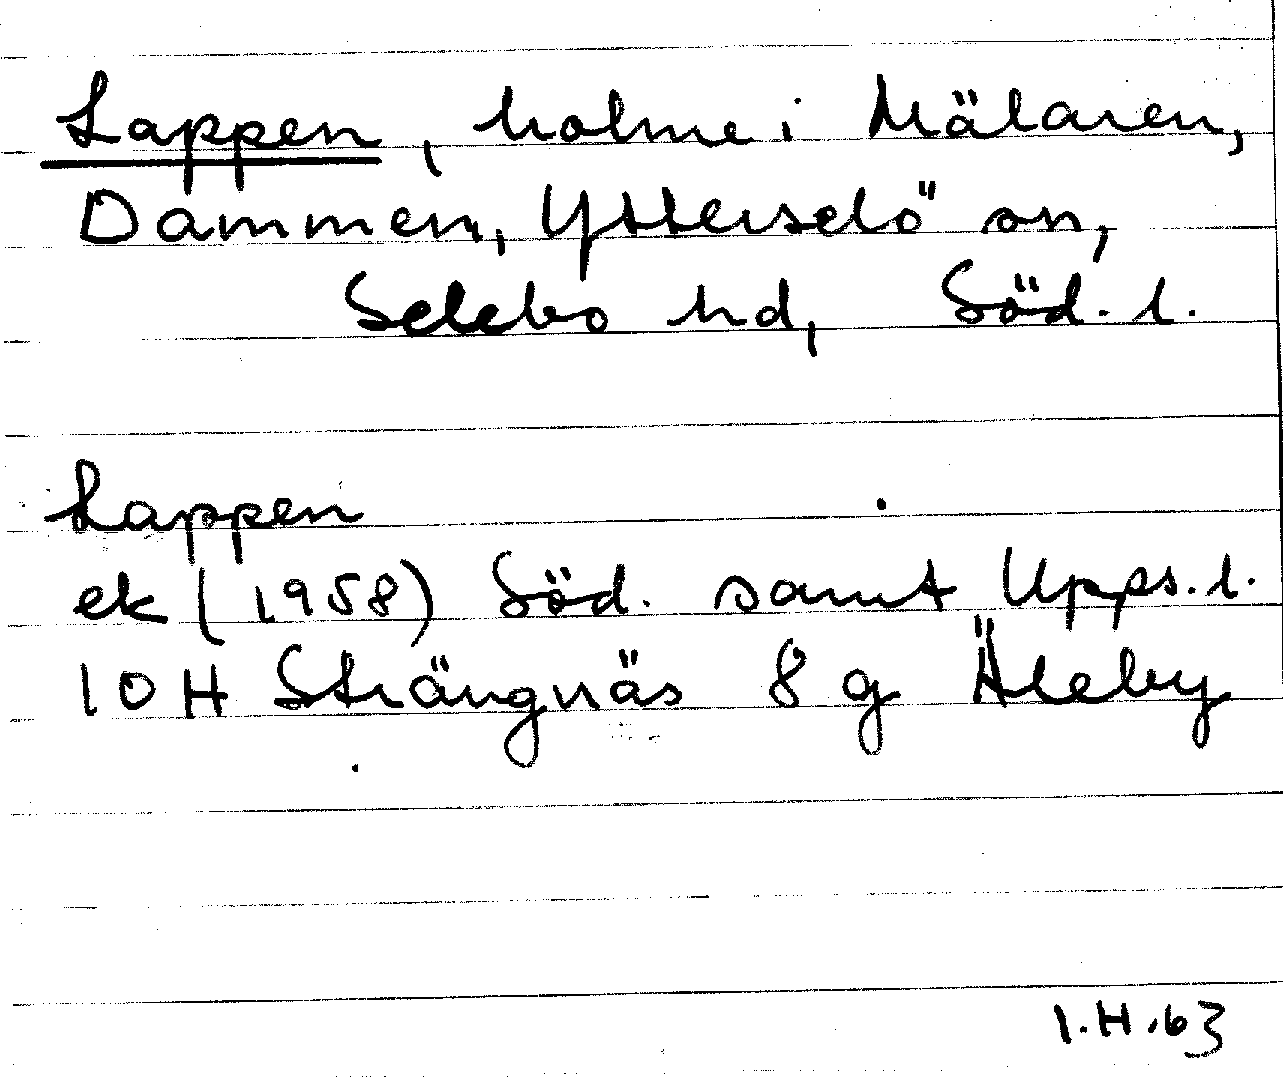 Lappen, holme i Mälaren,
Dammen, Ytterselö sn,
Selebo hd, Söd. l.
Lappen
ek (1958) Söd. samt Upps. l.
10 H Strängnäs 8 g Äleby
I.H.63